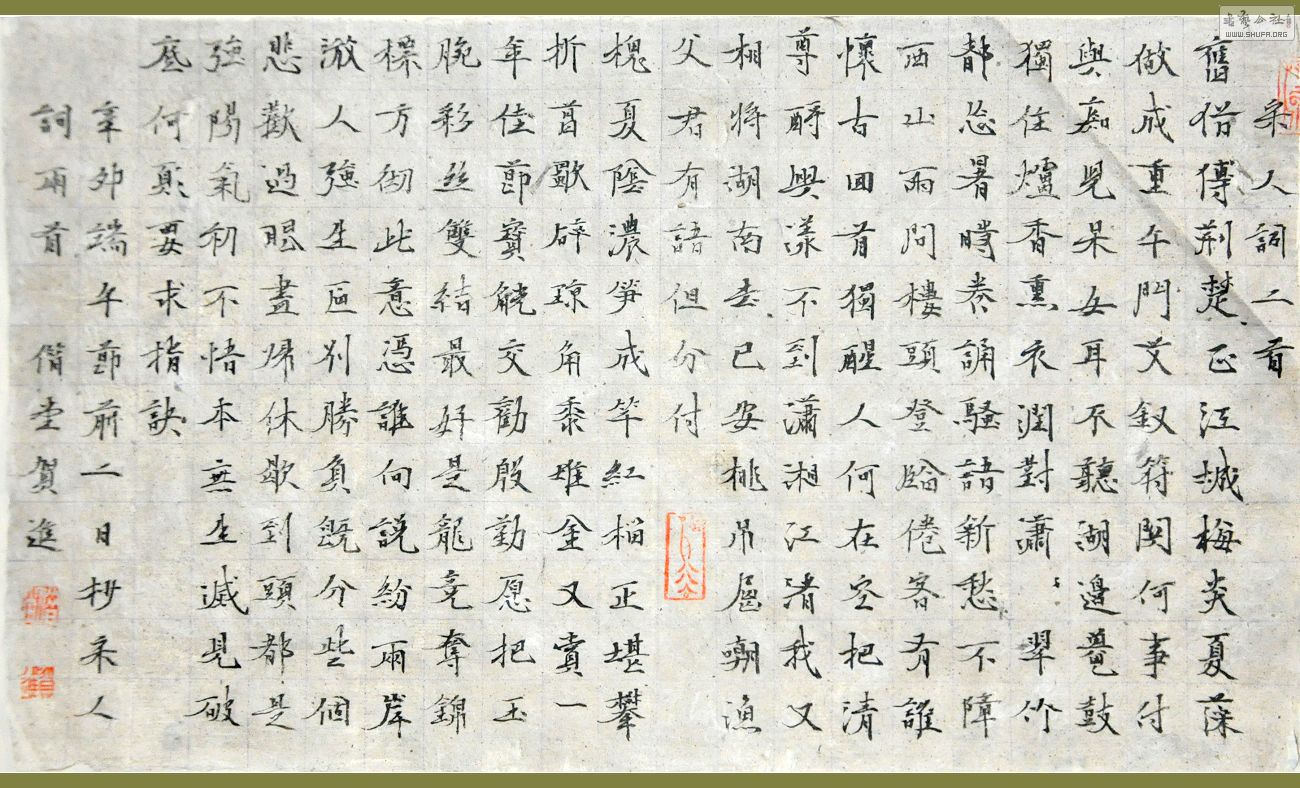 宋人詞二首
舊俗傳荊楚正江城梅炎夏藻
做成重午門艾釵符關何事付
與痴兒呆女耳不聽湖邊鼉鼓
獨住爐香熏衣潤對瀟〻翠竹
都忘暑時卷誦騷語新愁不障
西山雨問樓頭登臨倦客有誰
懷古回首獨醒人何在空把清
尊酹與漾不到瀟湘江渚我又
相將湖南去已安桃吊屈嘲漁
父君有語但分付
槐夏陰濃筍成竿紅榴正堪攀
折菖歜碎瓊角黍堆金又賞一
年佳節寶觥交勸殷勤愿把玉
腕彩絲雙結最好是龍竞奪錦
標方彻此意憑誰向說紛兩岸
漵人強生區別勝負既分些個
悲歡過眼盡歸休歇到頭都是
強陽氣初不悟本無生滅見破
底何須更求指訣
辛卯端午節前二日抄宋人
詞兩首 偕堂賀進
书艺公社
WWW.SHUFA.ORG